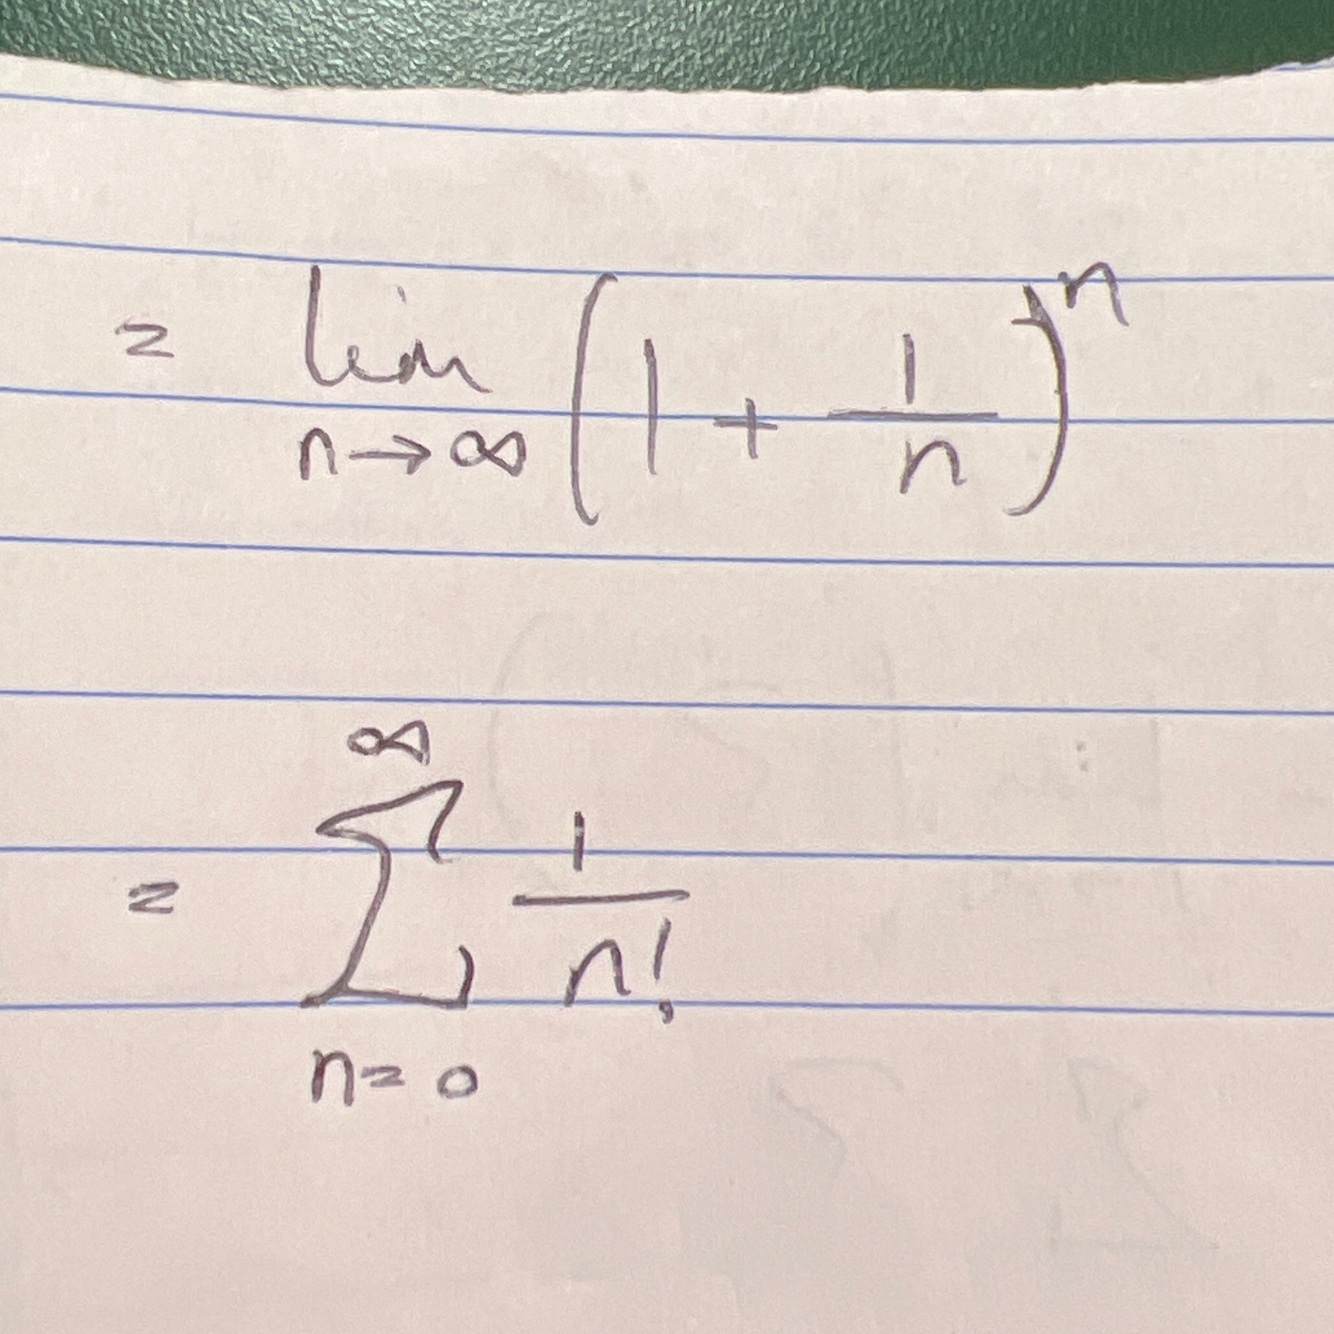 = lim n→∞ (1 + 1/n)^n
= ∑_{n=0}^{∞} 1/n!